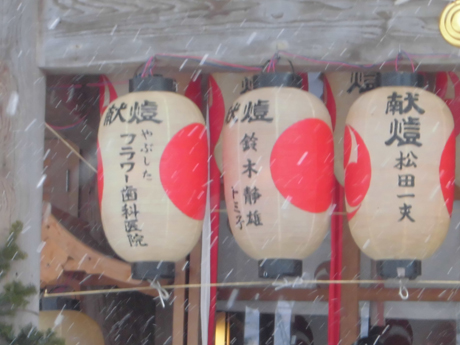 献燈
やぶした
フラワー歯科医院
献燈
鈴木静雄
献燈
松田一夫